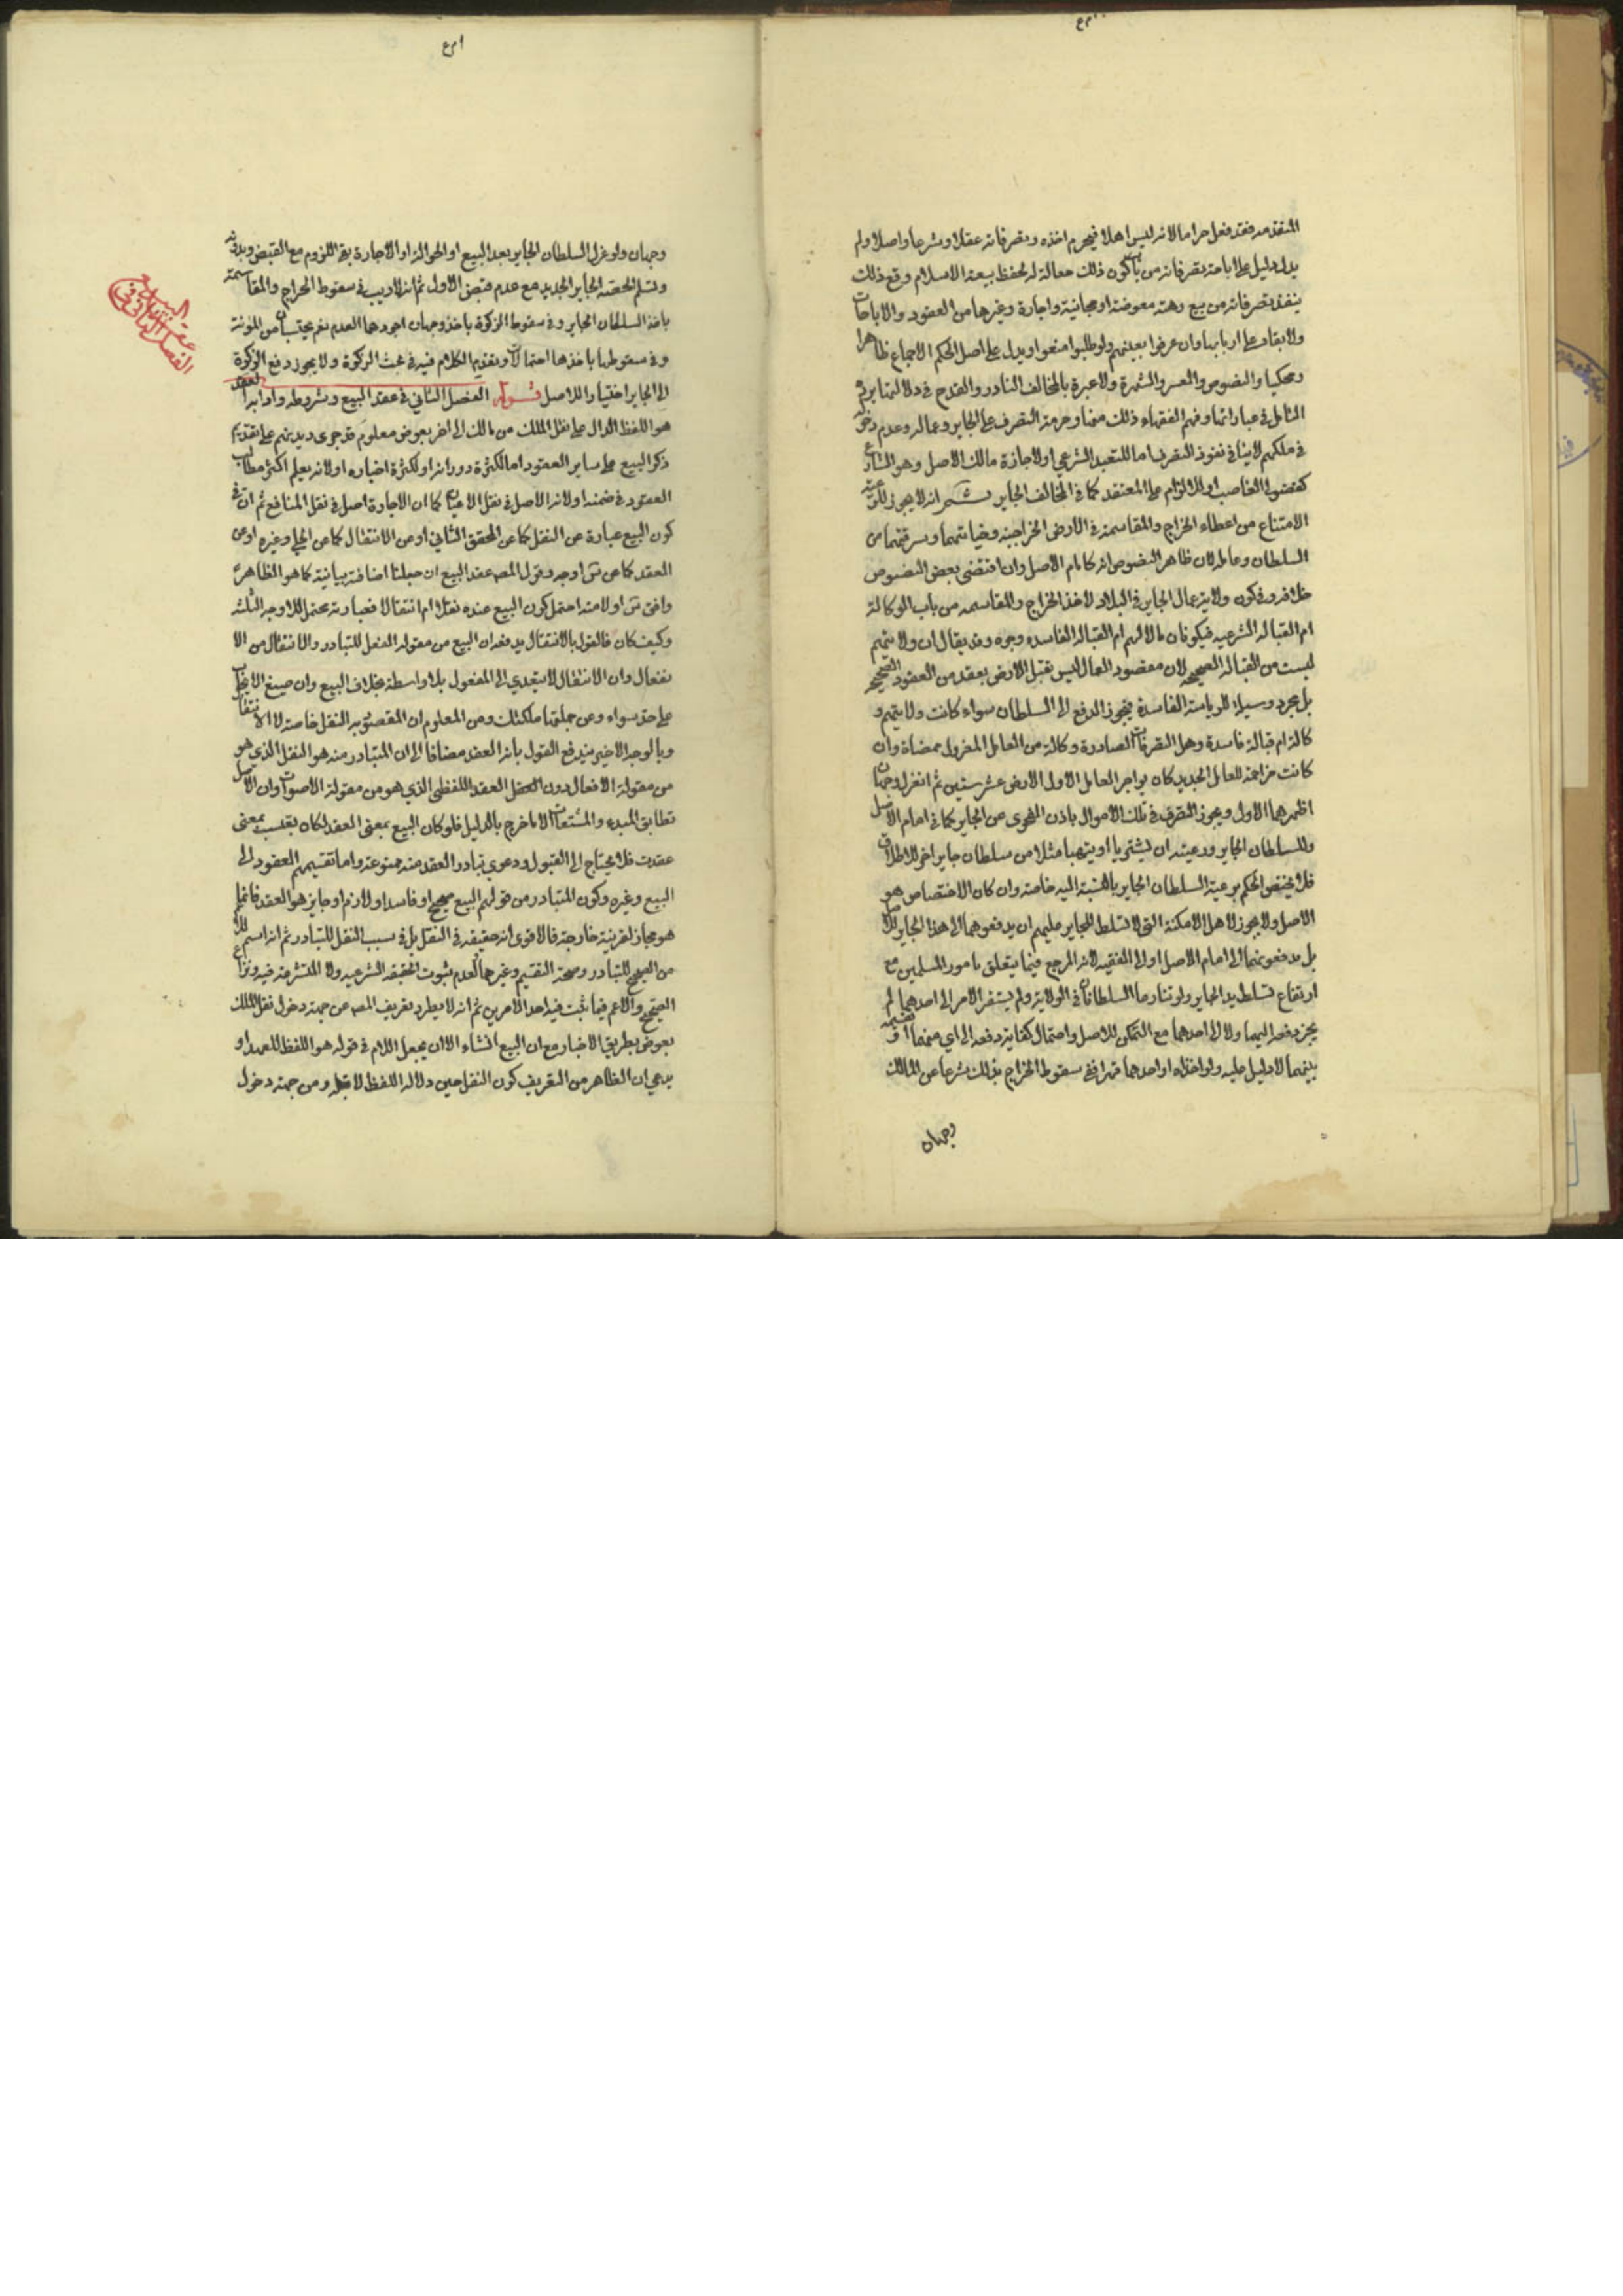 المتقدمه فقد فعل حراما لانه ليس اهلا فيحرم اخذه وتصرفاته عقلا وشرعا واصلا ولم
يدل دليل على اباحة تصرفاته من باب كون ذلك جعالة له لحفظ بيضة الاسلام ومع ذلك
ينفذ تصرفاته من بيع وهبة معوضة او مجانية واجارة وغيرها من العقود والاباحات
ولا يقاد على اربابها وان عرفوا بعينهم ولو طلبوا منعوا ويدل على اصل الحكم الاجماع ظاهرا
ومحكيا والنصوص والعسر والشهرة ولا عبرة بالمخالف النادر والقدح في دلالتها يرفعه
التامل في عباراتها وفهم الفقهاء ذلك منها وحرمة التصرف على الجاير وعماله وعدم دخوله
في ملكهم لا ينافي نفوذ التصرف اما للتعبد الشرعي او لاجازة مالك الاصل وهو الشارع
كفضولي الغاصب او للالزام على المعتقد كما في المخالف الجاير ثم انه لا يجوز للرعية
الامتناع من اعطاء الخراج والمقاسمة في الارض الخراجية وخيانتهما وسرقتهما من
السلطان وعامله لان ظاهر النصوص انه كامام الاصل وان اقتضى بعض النصوص
خلافه وفي كون ولاية عمال الجاير في البلاد لاخذ الخراج والمقاسمه من باب الوكالة
ام القباله الشرعيه فيكونان مالا لهم ام القباله الفاسده وجوه وقد يقال ان ولايتهم
ليست من القباله الصحيحه لان مقصود العمال ليس تقبل الارض بعقد من العقود الصحيحه
بل مجرد وسيلة للرياسة الفاسدة فيجوز الدفع الى السلطان سواء كانت ولايتهم و
كالة ام قبالة فاسدة وهل التصرفات الصادرة وكالة من العامل المعزول ممضاة وان
كانت مزاحمة للعامل الجديد كان يواجر العامل الاول الارض عشر سنين ثم انعزل وجهان
اظهرهما الاول ويجوز التصرف في تلك الاموال باذن الفحوى من الجاير كما في امام الاصل
وللسلطان الجاير ورعيته ان يشتريا او يتهبا مثلا من سلطان جاير اخر للاطلاق
فلا يختص الحكم برعية السلطان الجاير بالنسبة اليه خاصة وان كان الاختصاص هو
الاصل ولا يجوز لاهل الامكنة التي لا تسلط للجاير عليهم ان يدفعوهما الى هذا الجاير للاصل
بل يدفعونهما الى امام الاصل او الى الفقيه لانه المرجع فيما يتعلق بامور المسلمين مع
ارتفاع تسلط يد الجاير ولو تنازعا السلطانان في الولاية ولم يستقر الامر الى احدهما لم
يجز دفعه اليهما ولا الى احدهما مع التمكن للاصل واحتمال كفاية دفعه الى اي منهما او تقسيمه
بينهما لا دليل عليه ولو اخذاه او احدهما قهرا ففي سقوط الخراج بذلك شرعا عن المالك
وجهان
وجهان ولو عزل السلطان الجاير بعد البيع او الحوالة او الاجارة بقي اللزوم مع القبض وبدونه
وتسلم الحصة الجاير الجديد مع عدم قبض الاول ثم انه لا ريب في سقوط الخراج والمقاسمة
باخذ السلطان الجاير وفي سقوط الزكوة باخذه وجهان اجودهما العدم نعم يحتسبان من المؤنة
وفي سقوطها باخذها احتمالان وتقدم الكلام فيه في بحث الزكوة ولا يجوز دفع الزكوة
الى الجاير اختيارا للاصل قوله الفصل الثاني في عقد البيع وشروطه وادابه العقد
هو اللفظ الدال على نقل الملك من مالك الى اخر بعوض معلوم قد جرى ديدنهم على تقديم
ذكر البيع على ساير العقود اما لكثرة دورانه او لكثرة اخباره او لانه يعلم اكثر مطالب
العقود في ضمنه او لانه الاصل في نقل الاعيان كما ان الاجارة اصل في نقل المنافع ثم ان في
كون البيع عبارة عن النقل كما عن المحقق الثاني او عن الانتقال كما عن الحلي وغيره او عن
العقد كما عن اوجه وقول المص عقد البيع ان جعلنا اضافته بيانية كما هو الظاهر
وافق اولا منه احتمل كون البيع عنده نقلا ام انتقالا فعبارته يحتمل للاوجه الثلثه
وكيف كان فالقول بالانتقال يدفعه ان البيع من مقولة الفعل للتبادر والانتقال من الا
نفعال وان الانتقال لا يتعدي الى المفعول بلا واسطة بخلاف البيع وان صيغ الايجاب
على حد سواء ومن جملتها ملكتك ومن المعلوم ان المقصود به النقل خاصة لا الانتقال
وبالوجه الاخير يندفع القول بانه العقد مضافا الى ان المتبادر منه هو النقل الذي هو
من مقولة الافعال دون العقد اللفظي الذي هو من مقولة الاصوات وان الاصل
تطابق المبدء والمشتقات الا ما خرج بالدليل فلو كان البيع بمعنى العقد لكان بعت بمعنى
عقدت فلا يحتاج الى القبول ودعوى تبادر العقد منه ممنوعة واما تقسيمهم العقود الى
البيع وغيره وكون المتبادر من قولهم البيع صحيح او فاسد او لازم او جايز هو العقد فانما
هو مجاز لقرينة خارجة فالاقوى انه حقيقه في النقل بل في سبب النقل للتبادر ثم انه اسم للاعم
من الصحيح للتبادر وصحة التقسيم وغيرهما لعدم ثبوت الحقيقه الشرعيه ولا المتشرعة فيه ونزاع
الصحيح والاعم فيما ثبت فيه احد الامرين ثم انه لا يطرد تعريف المص من جهة دخول نقل الملك
بعوض بطريق الاخبار مع ان البيع انشاء الا ان يجعل اللام في قوله هو اللفظ للعهد او
يدعي ان الظاهر من التعريف كون النقل حين دلالة اللفظ لا قبله ومن جهة دخول
الفصل الثاني في
عقد البيع